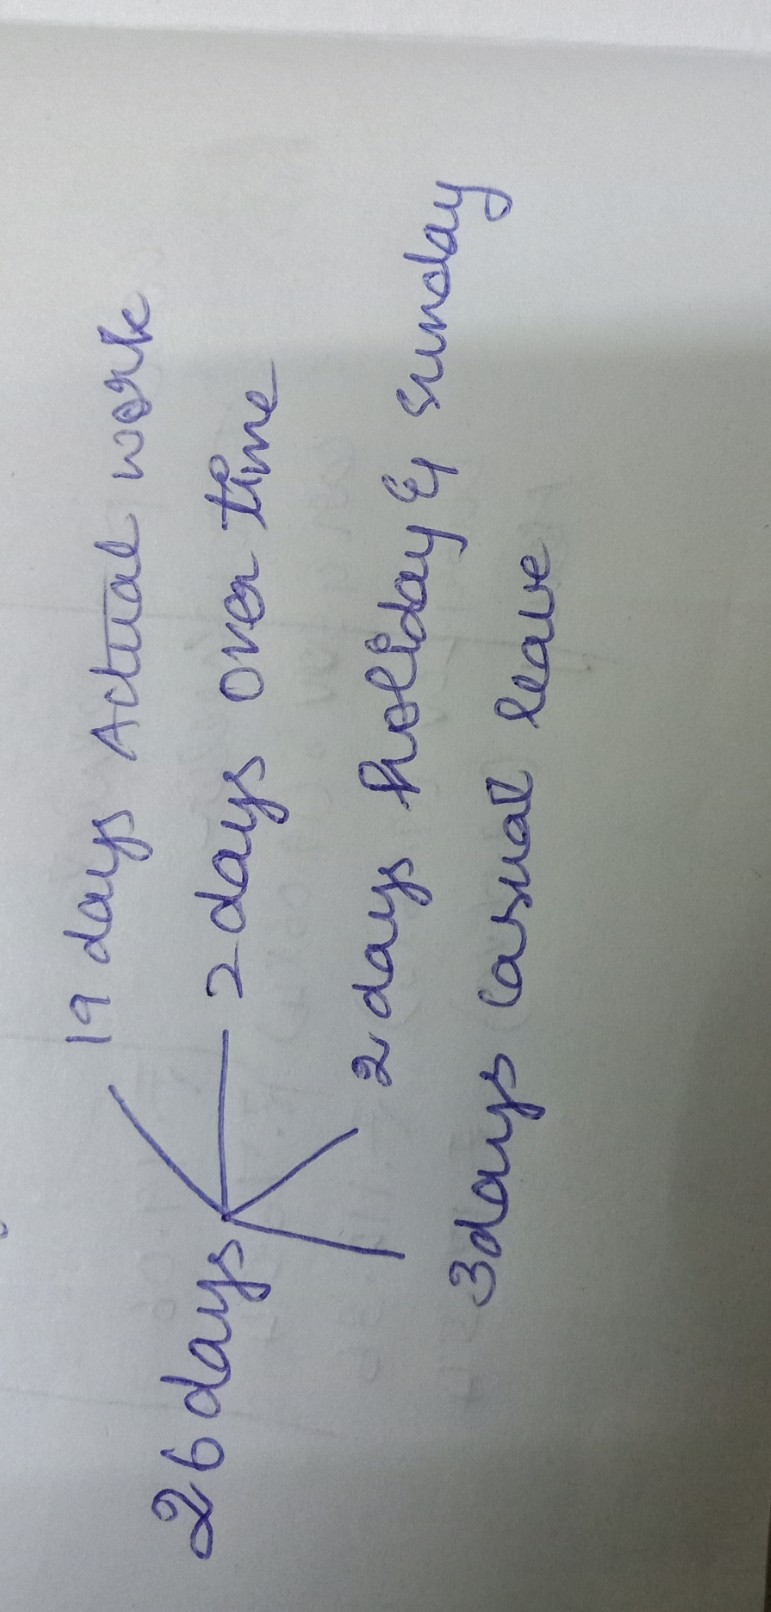 19 days Actual work
26 days 2 days over time
2 days holiday & sunday
3 days casual leave